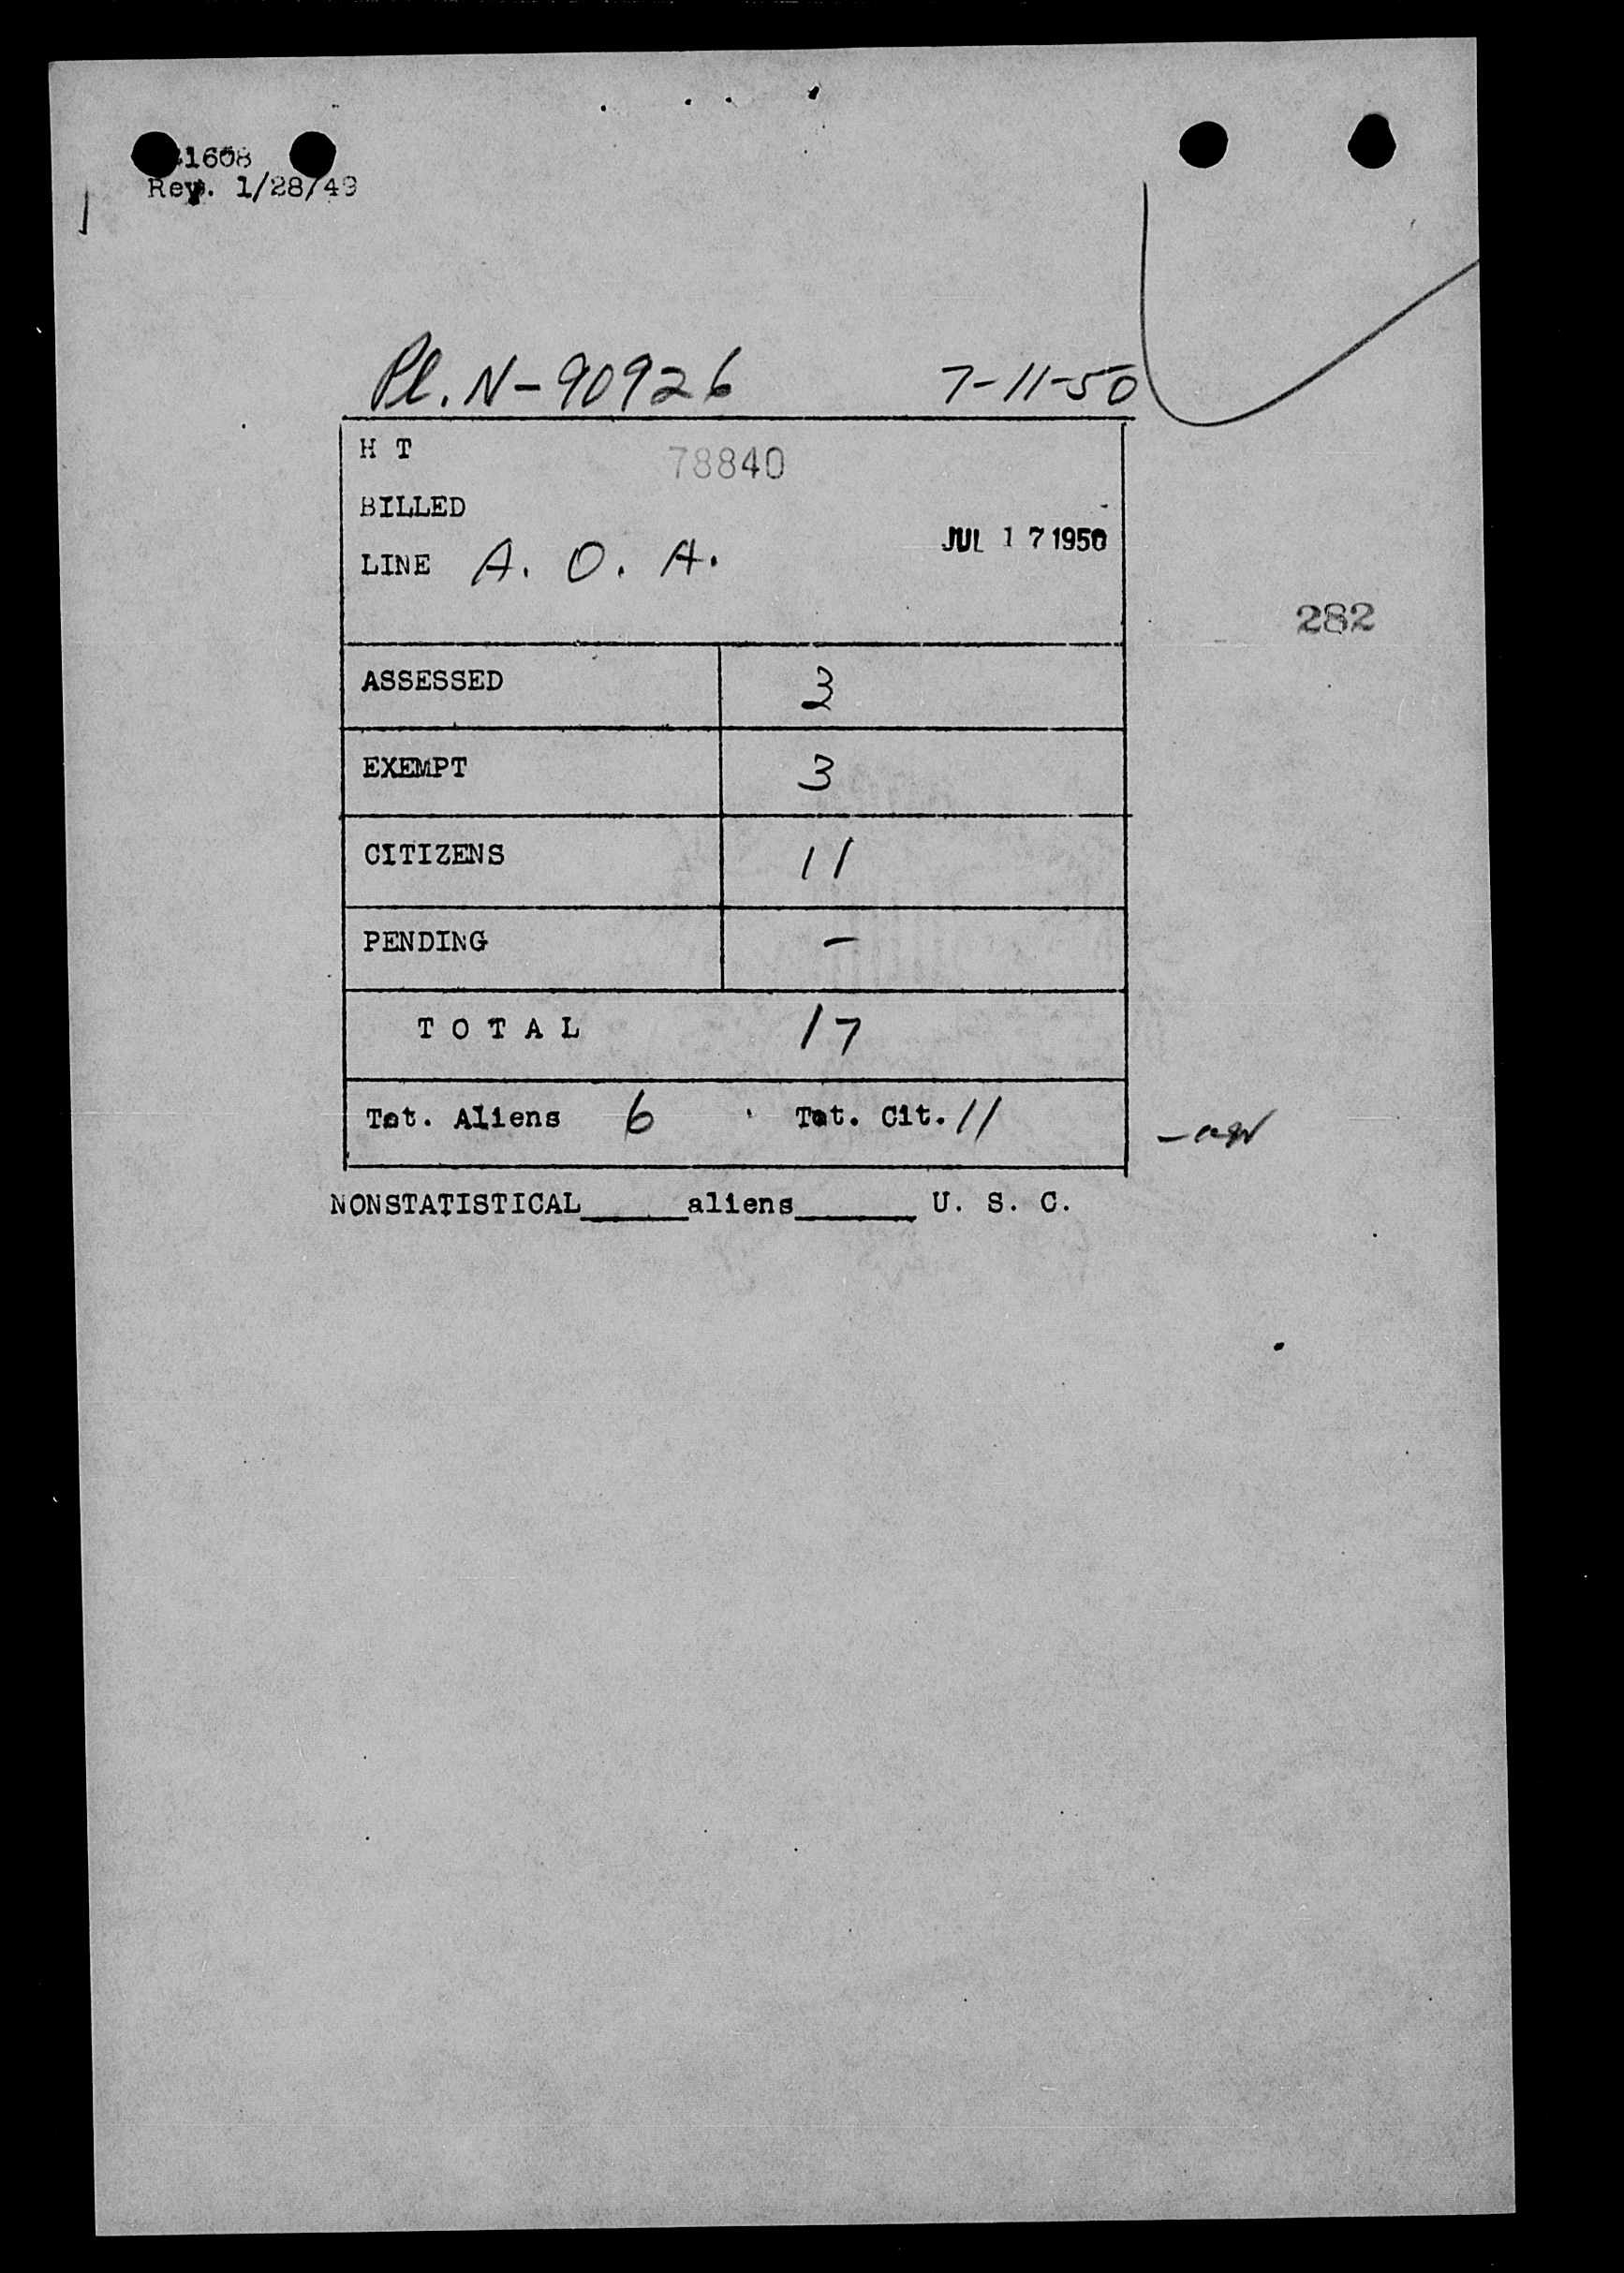 1608
Rev. 1/28/49
Pl. N-90926 7-11-50
H T 78840
BILLED
JUL 17 1950
LINE A. O. A.
282
ASSESSED 3
EXEMPT 3
CITIZENS 11
PENDING -
T O T A L 17
Tot. Aliens 6 Tot. Cit. 11
NONSTATISTICAL_____aliens______ U. S. C.